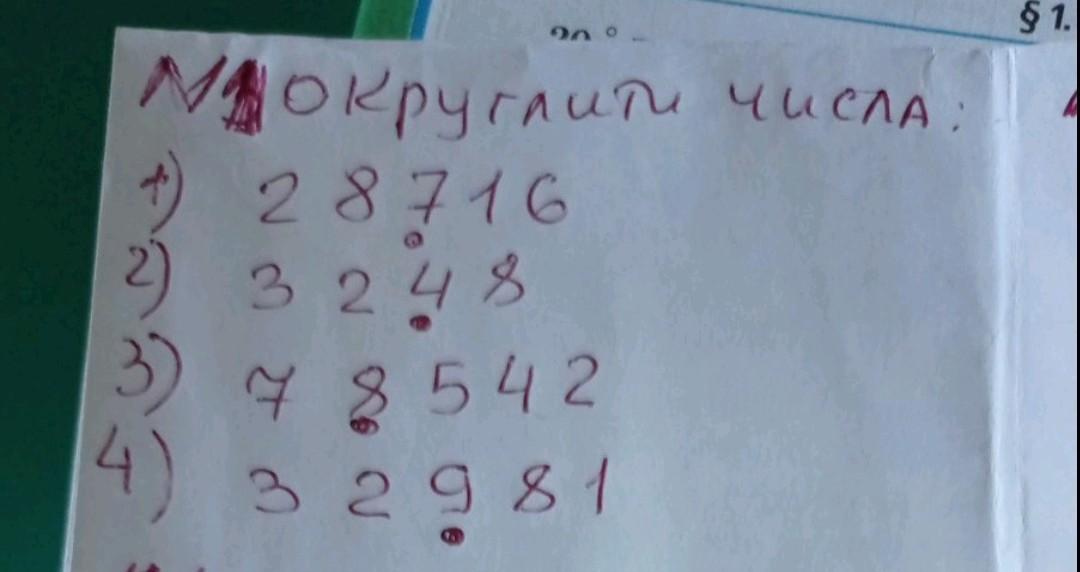 § 1.
№1 Округлити числа:
1) 28716
2) 3248
3) 78542
4) 32981